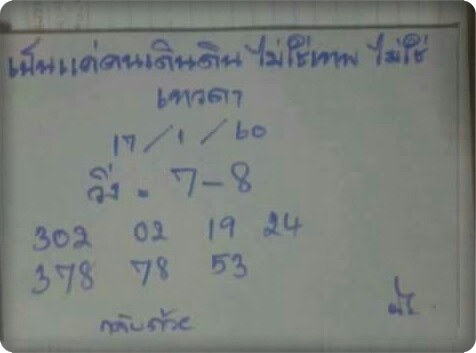 เป็นแค่คนเดินดิน ไม่ใช่เทพ ไม่ใช่
เทวดา
17/1/60
วิ่ง = 7-8
302 02 19 24
378 78 53
กลับด้วย